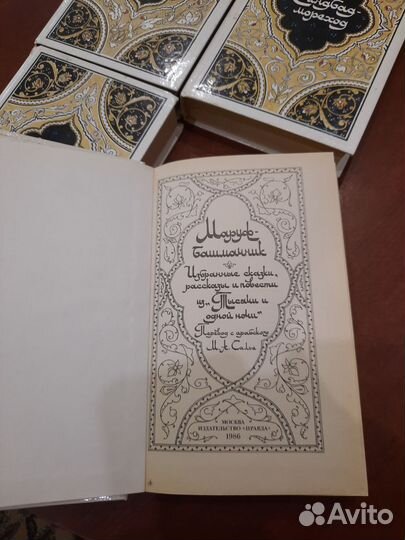 Синдбад
мореход
Маруф-
башмачник
Избранные сказки,
рассказы и повести
из „Тысячи и
одной ночи“
Перевод с арабского
М. А. Салье
МОСКВА
ИЗДАТЕЛЬСТВО «ПРАВДА»
1986
Avito